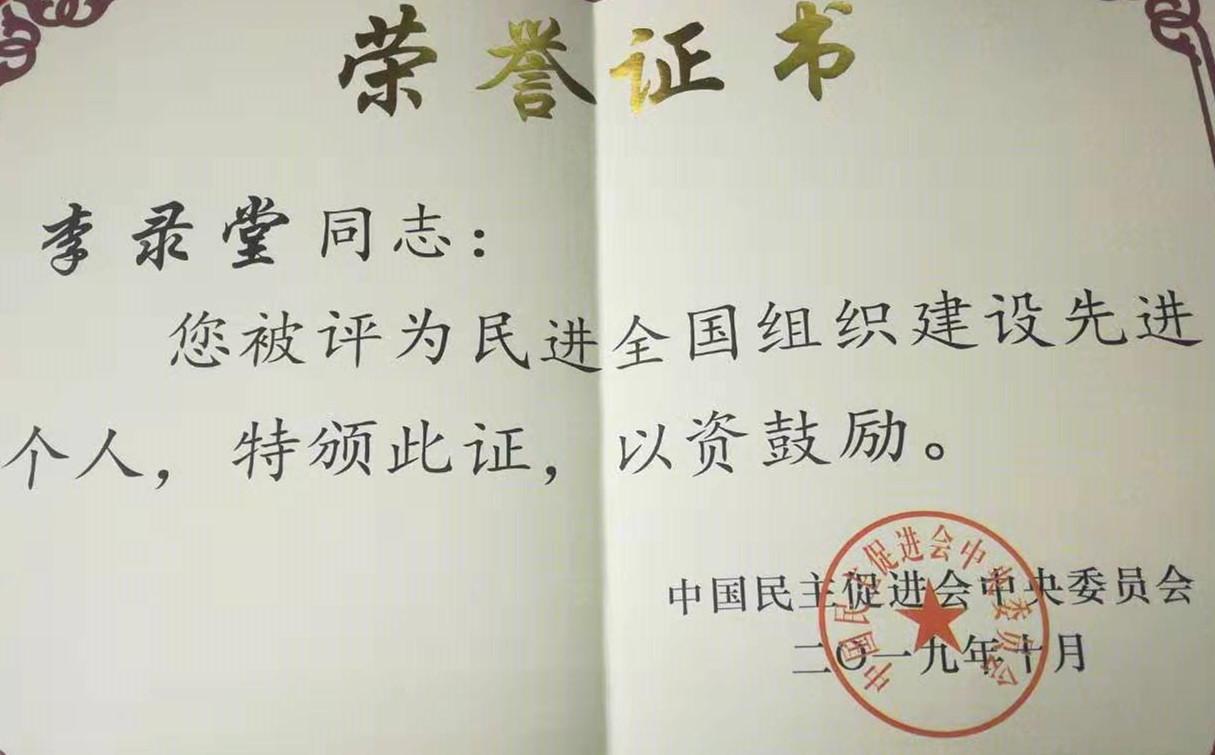 荣誉证书
李录堂同志：
您被评为民进全国组织建设先进
个人，特颁此证，以资鼓励。
中国民主促进会中央委员会
二〇一九年十月
中国民主促进会中央委员会